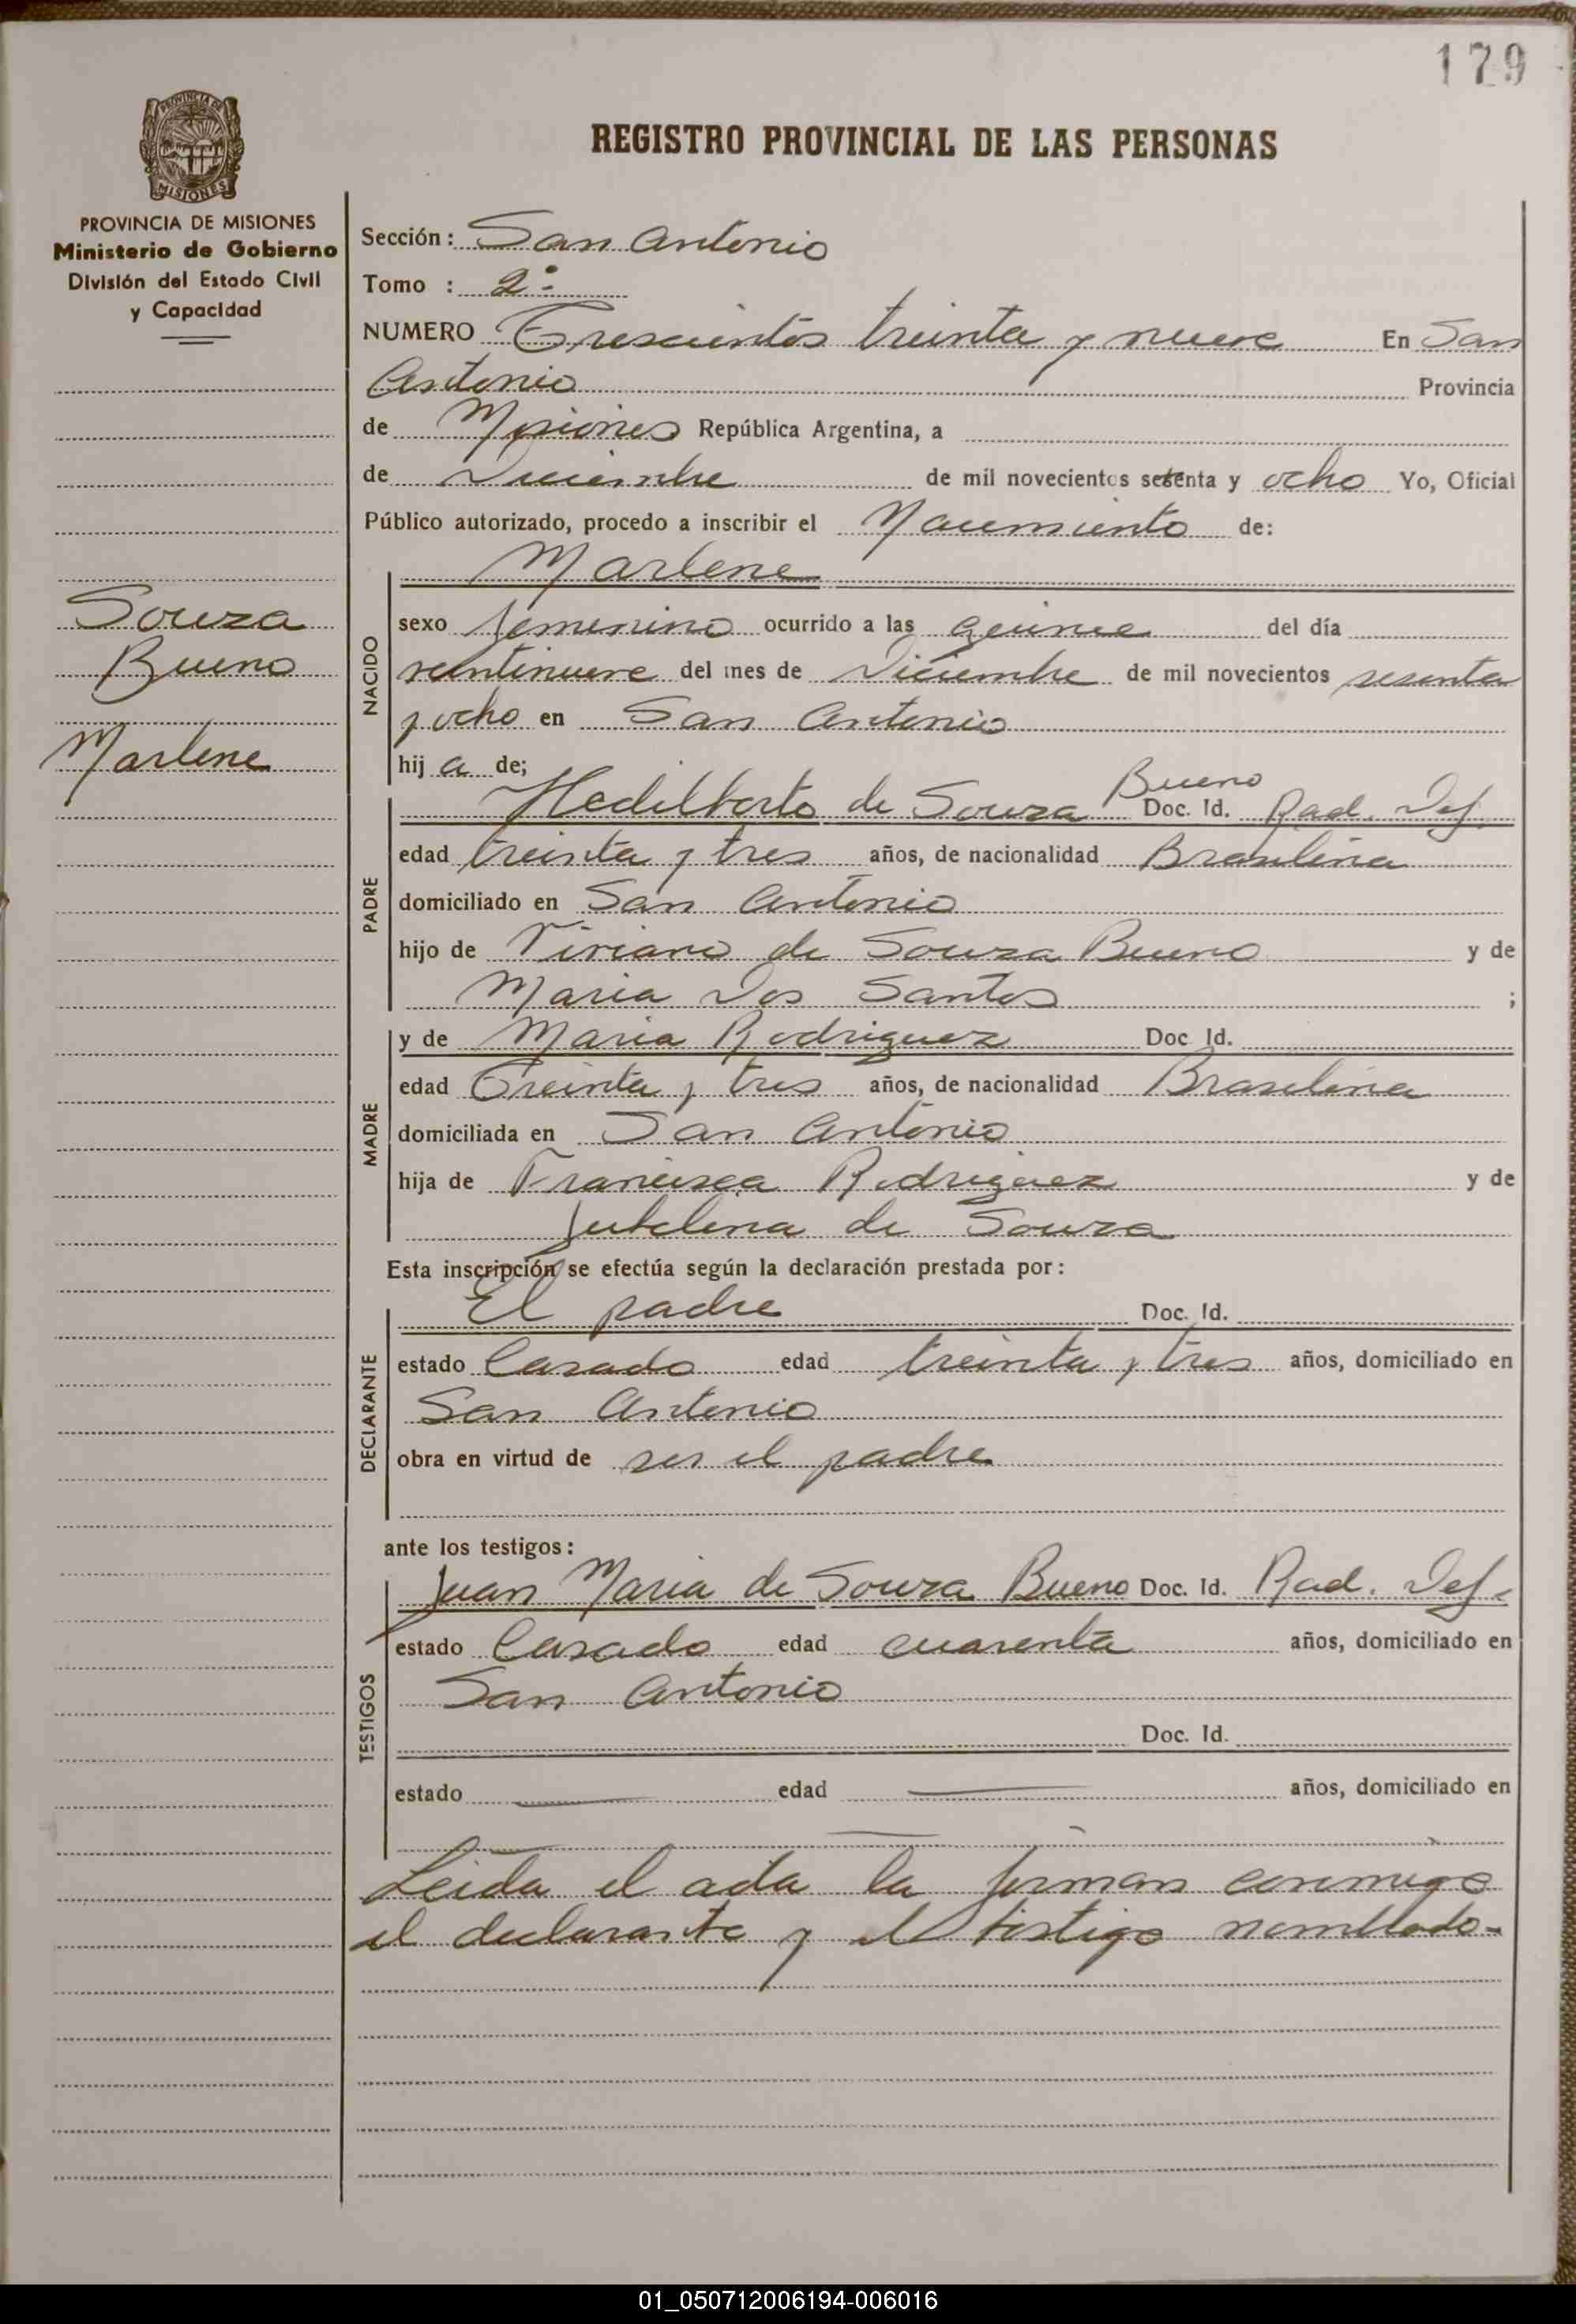 179
PROVINCIA DE MISIONES
REGISTRO PROVINCIAL DE LAS PERSONAS
PROVINCIA DE MISIONES
Ministerio de Gobierno
División del Estado Civil
y Capacidad
Souza
Bueno
Marlene
Sección: San Antonio
Tomo : 2º
NUMERO Trescientos treinta y nueve En San
Antonio Provincia
de Misiones República Argentina, a
de Diciembre de mil novecientos setenta y ocho Yo, Oficial
Público autorizado, procedo a inscribir el Nacimiento de:
Marlene
NACIDO
sexo femenino ocurrido a las quince del día
veintinueve del mes de Diciembre de mil novecientos sesenta
y ocho en San Antonio
hij a de;
Bueno
Hedilberto de Souza Doc. Id. Rad. Def.
PADRE
edad treinta y tres años, de nacionalidad Brasilena
domiciliado en San Antonio
hijo de Viriano de Souza Bueno y de
Maria Dos Santos ;
y de Maria Rodriguez Doc Id.
MADRE
edad Treinta y tres años, de nacionalidad Brasilena
domiciliada en San Antonio
hija de Francisca Rodriguez y de
de Souza
Esta inscripción se efectúa según la declaración prestada por:
El padre Doc. Id.
DECLARANTE
estado Casado edad treinta y tres años, domiciliado en
San Antonio
obra en virtud de ser el padre
ante los testigos:
Juan Maria de Souza Bueno Doc. Id. Rad. Def.
TESTIGOS
estado Casado edad cuarenta años, domiciliado en
San Antonio
Doc. Id.
estado edad años, domiciliado en
Leida el acta la firman conmigo
el declarante y el testigo nombrado-
01_050712006194-006016